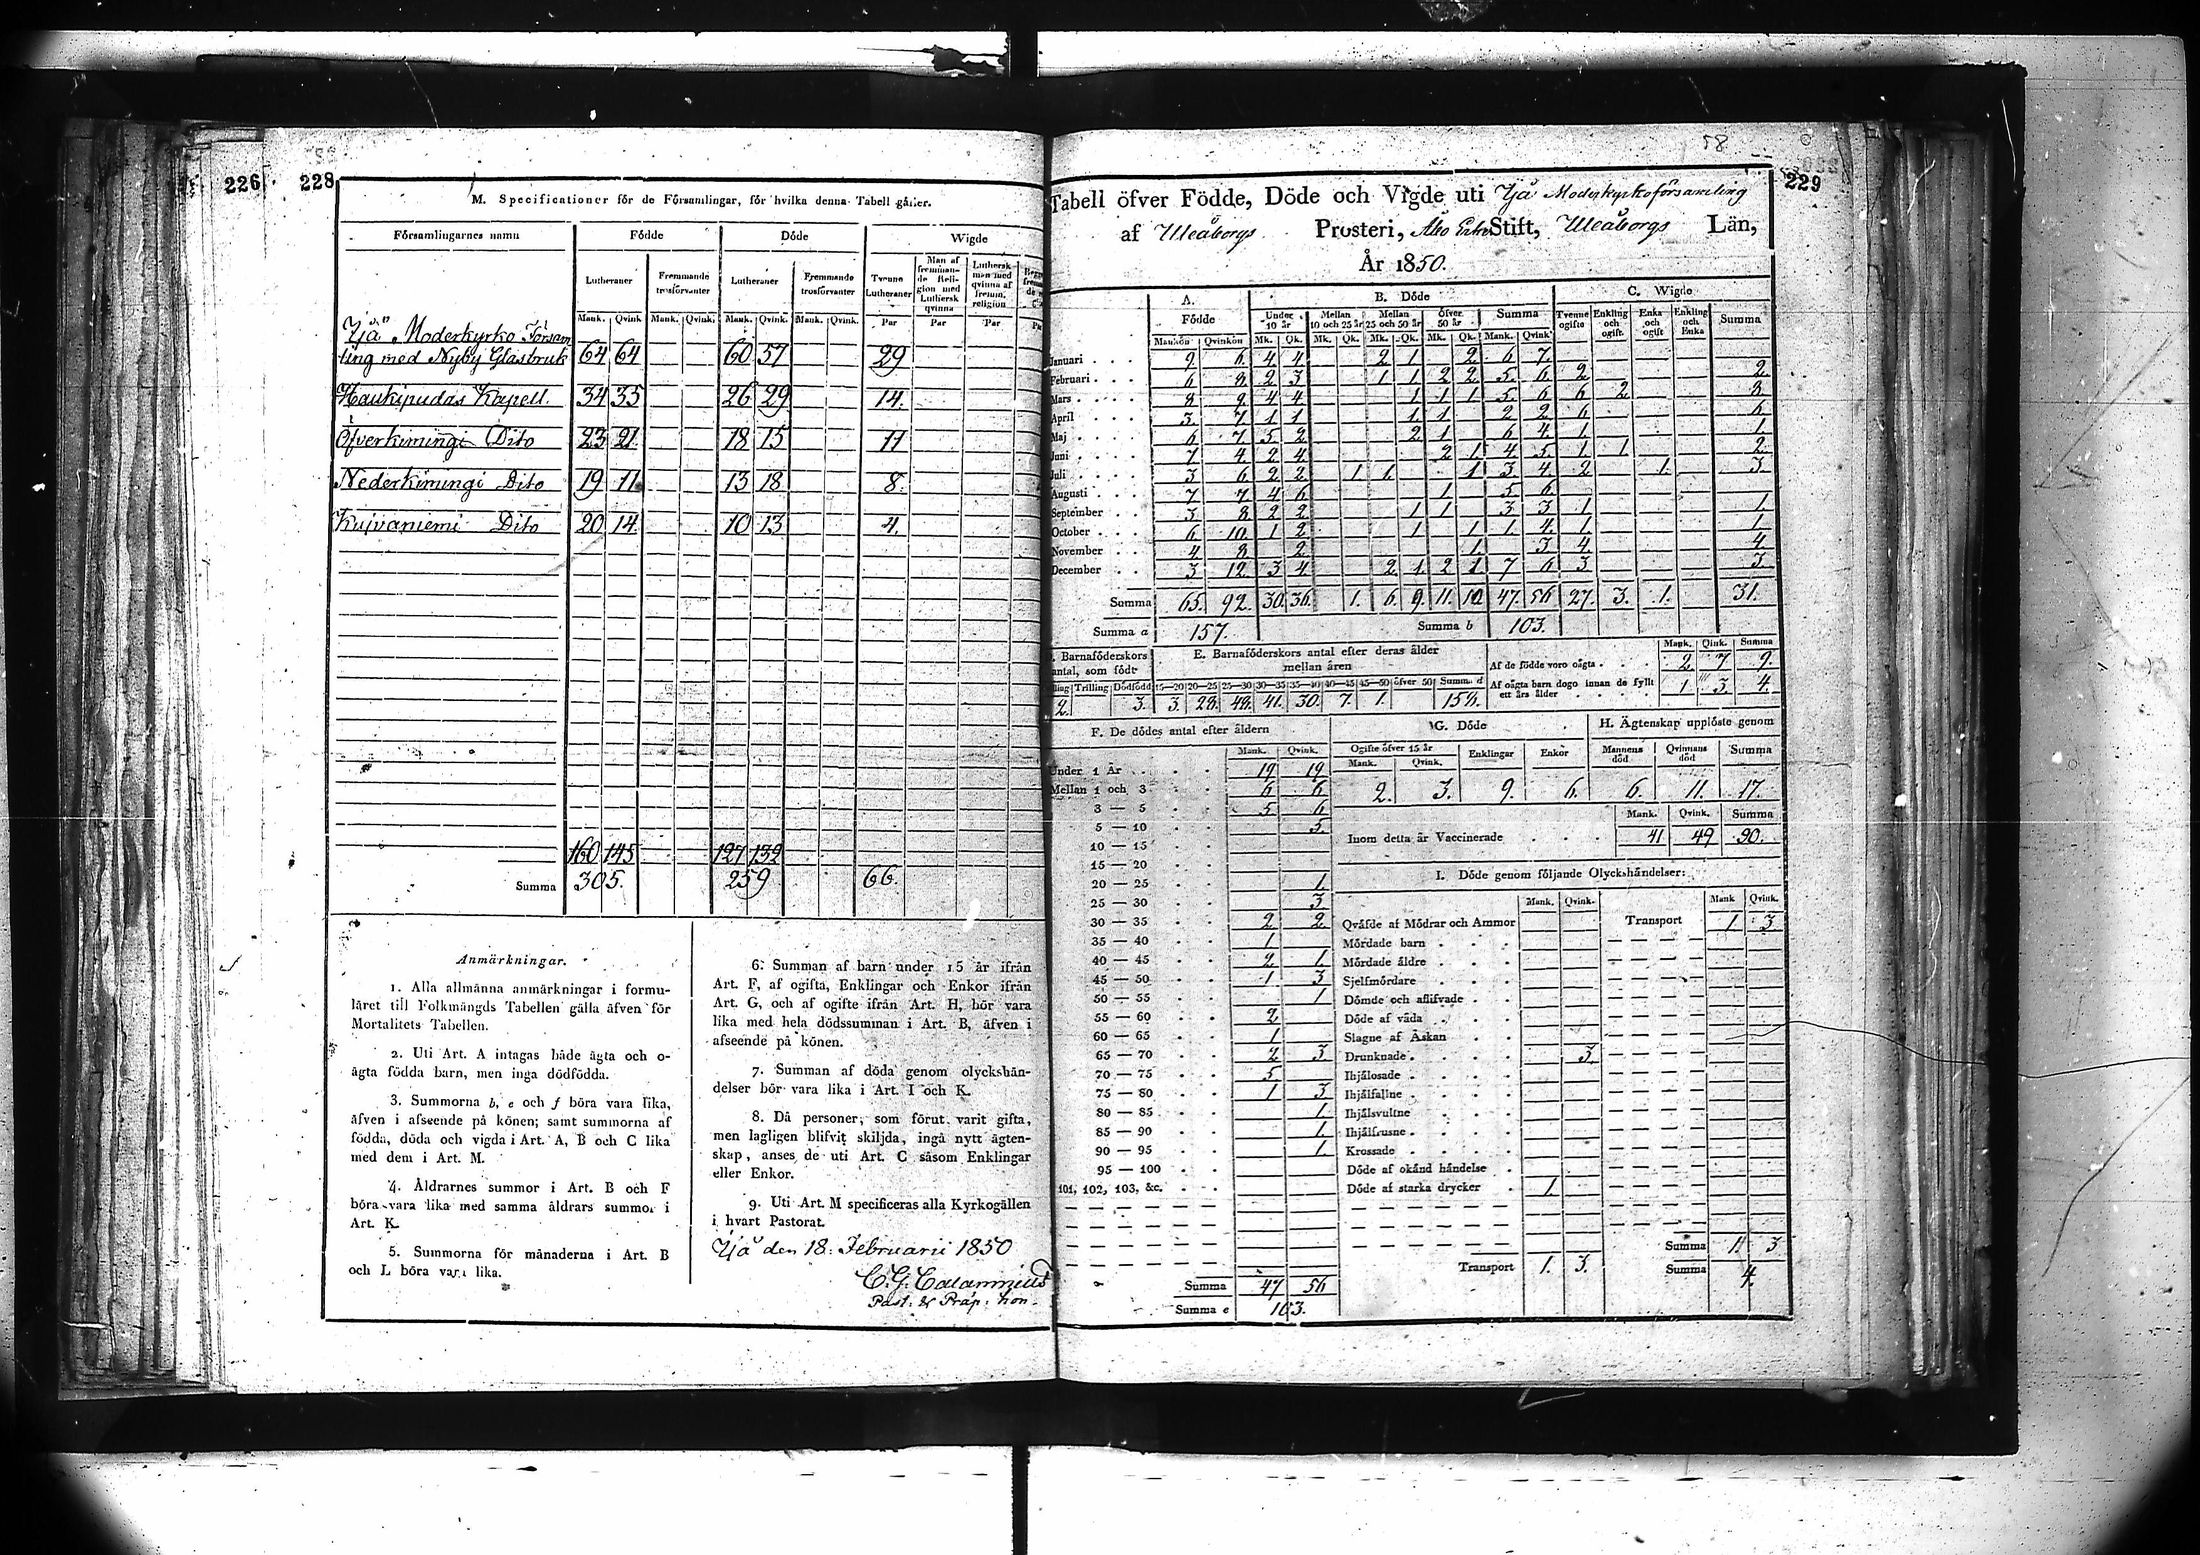 226 228
M. Specificationer för de Församlingar, för hvilka denna Tabell gäller.
Församlingarnes namn Födde Döde Wigde
Lutheraner Fremmande trosförvanter Lutheraner Fremmande trosförvanter Tvenne Lutheraner Man af fremmande Religion med Luthersk qvinna Luthersk man med qvinna af fremm. religion
Mank. Qvink. Mank. Qvink. Mank. Qvink. Mank. Qvink. Par Par Par
Ijå Moderkyrko Försam
ling med Nyby Glasbruk 64 64 60 57 29
Haukipudas Kapell. 34 35 26 29 14.
Öfverkimingi Dito 23 21. 18 15 11
Nederkimingi Dito 19 11 13 18 8.
Kuivaniemi Dito 20 14. 10 13 4.
160 145 127 132
Summa 305. 259 66.
Anmärkningar.
1. Alla allmänna anmärkningar i formu-
läret till Folkmängds Tabellen gälla äfven för
Mortalitets Tabellen.
2. Uti Art. A intagas både ägta och o-
ägta födda barn, men inga dödfödda.
3. Summorna b, e och f böra vara lika,
äfven i afseende på könen; samt summorna af
födda, döda och vigda i Art. A, B och C lika
med dem i Art. M.
4. Åldrarnes summor i Art. B och F
böra vara lika med samma åldrars summor i
Art. K.
5. Summorna för månaderna i Art. B
och L böra vara lika.
6. Summan af barn under 15 år ifrån
Art. F, af ogifta, Enklingar och Enkor ifrån
Art. G, och af ogifte ifrån Art. H, bör vara
lika med hela dödssumman i Art. B, äfven i
afseende på könen.
7. Summan af döda genom olyckshän-
delser bör vara lika i Art. I och K.
8. Då personer, som förut varit gifta,
men lagligen blifvit skiljda, ingå nytt ägten-
skap, anses de uti Art. C såsom Enklingar
eller Enkor.
9. Uti Art. M specificeras alla Kyrkogällen
i hvart Pastorat.
Ijå den 18. Februarii 1850
C. G. Calamnius
Past: & Präp: hon.
58
229
Tabell öfver Födde, Döde och Vigde uti Ijå Moderkyrkoförsamling
af Uleåborgs Prosteri, Åbo Erke Stift, Uleåborgs Län,
År 1850.
A. Födde B. Döde C. Wigde
Under 10 år Mellan 10 och 25 år Mellan 25 och 50 år Öfver 50 år Summa Tvenne ogifte Enkling och ogift. Enka och ogift Enkling och Enka Summa
Mankön Qvinkön Mk. Qk. Mk. Qk. Mk. Qk. Mk. Qk. Mank. Qvink.
Januari 9 6 4 4 2 1 2 6 7.
Februari 6 8 2 3 1 1 2 2 5. 6. 2 2.
Mars 8 9 4 4 1 1 1 5. 6 6 2 8
April 3. 7 1 1 1 1 2 2 6 6
Maj 6 7 5 2 2 1 6 4. 1. 1.
Juni 7 4 2 4. 2 1. 4 5 1 1 2.
Juli 3 6 2 2 1 1. 1 3 4. 2 1. 3.
Augusti 7 7 4 6 1 5 6
September 3 8 2 2 1 1 3 3 1 1.
October 6 10. 1 2 1 1 1. 4. 1 1.
November 4 8 2. 1. 3 4. 4.
December 3 12. 3 4 2 1. 2 1 7 6 3 3.
Summa 65. 92. 30. 36. 1. 6. 9. 11. 10 47. 56 27. 3. 1. 31.
Summa a 157. Summa b 103.
Barnaföderskors antal, som födt
Trilling Dödfödd
2. 3.
E. Barnaföderskors antal efter deras ålder
mellan åren
15—20 20—25 25—30 30—35 35—40 40—45 45—50 öfver 50 Summa d
3. 28. 48. 41. 30. 7. 1. 158.
Mank. Qink. Summa
Af de födde voro oägta 2. 7 9.
Af oägta barn dogo innan de fyllt
ett års ålder 1 3. 4.
F. De dödes antal efter åldern
Mank. Qvink.
Under 1 År 19 19
Mellan 1 och 3 6 6
3 — 5 5 6
5 — 10 5.
10 — 15
15 — 20
20 — 25 1.
25 — 30 3.
30 — 35 2 2.
35 — 40 1
40 — 45 2 1.
45 — 50 1 3
50 — 55 1
55 — 60 2
60 — 65 1
65 — 70 2 3
70 — 75 5
75 — 80 1 3
80 — 85 1.
85 — 90 1.
90 — 95 1.
95 — 100
101, 102, 103, &c.
Summa 47 56
Summa e 103.
G. Döde
Ogifte öfver 15 år Enklingar Enkor
Mank. Qvink.
2. 3. 9. 6.
H. Ägtenskap upplöste genom
Mannens död Qvinnans död Summa
6. 11. 17.
Mank. Qvink. Summa
Inom detta år Vaccinerade 41 49 90.
I. Döde genom följande Olyckshändelser:
Mank. Qvink. Mank Qvink.
Qväfde af Mödrar och Ammor Transport 1 3
Mördade barn
Mördade äldre
Sjelfmördare
Dömde och aflifvade
Döde af våda
Slagne af Åskan
Drunknade 3.
Ihjälosade
Ihjälfallne
Ihjälsvultne
Ihjälfrusne
Krossade
Döde af okänd händelse
Döde af starka drycker 1.
Summa 1. 3
Transport 1. 3. Summa 4.